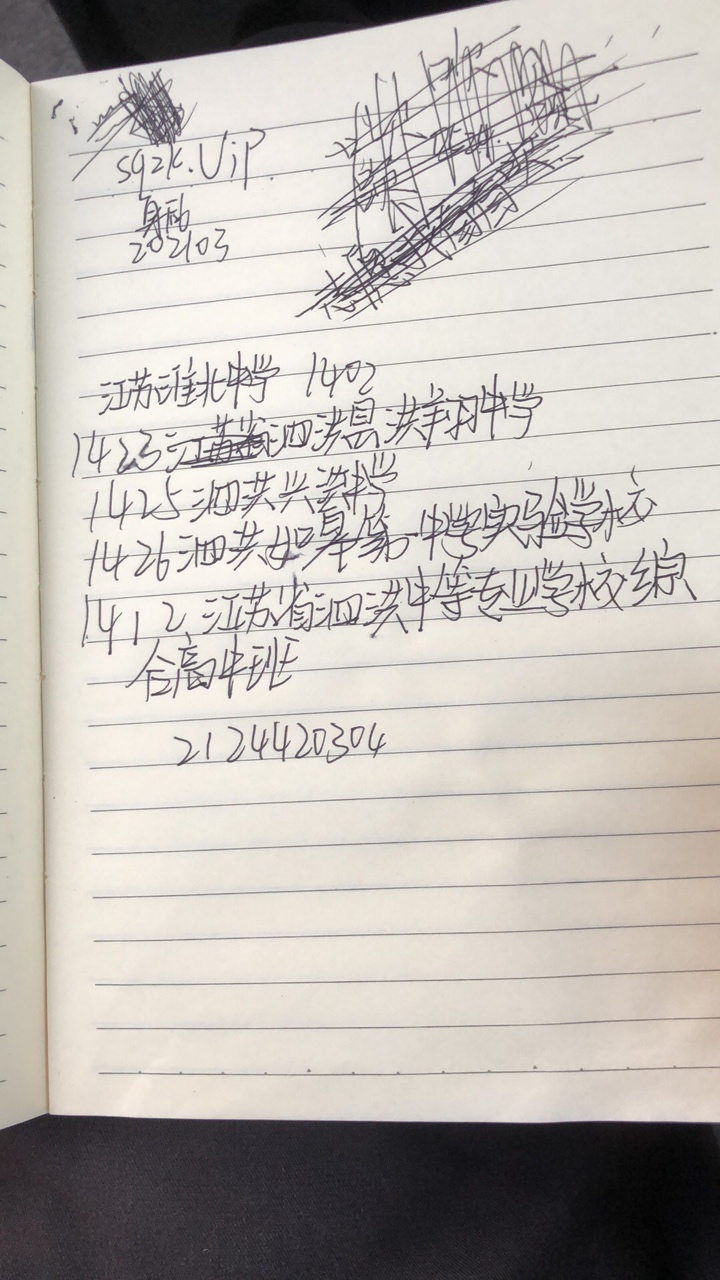 sqzk.Vip
身
202103
江苏淮北中学 1402
1423 泗洪县洪翔中学
1425 泗洪兴洪中学
1426 泗洪如皋第一中学实验学校
1412、江苏省泗洪中等专业学校综
合高中班
2124420304